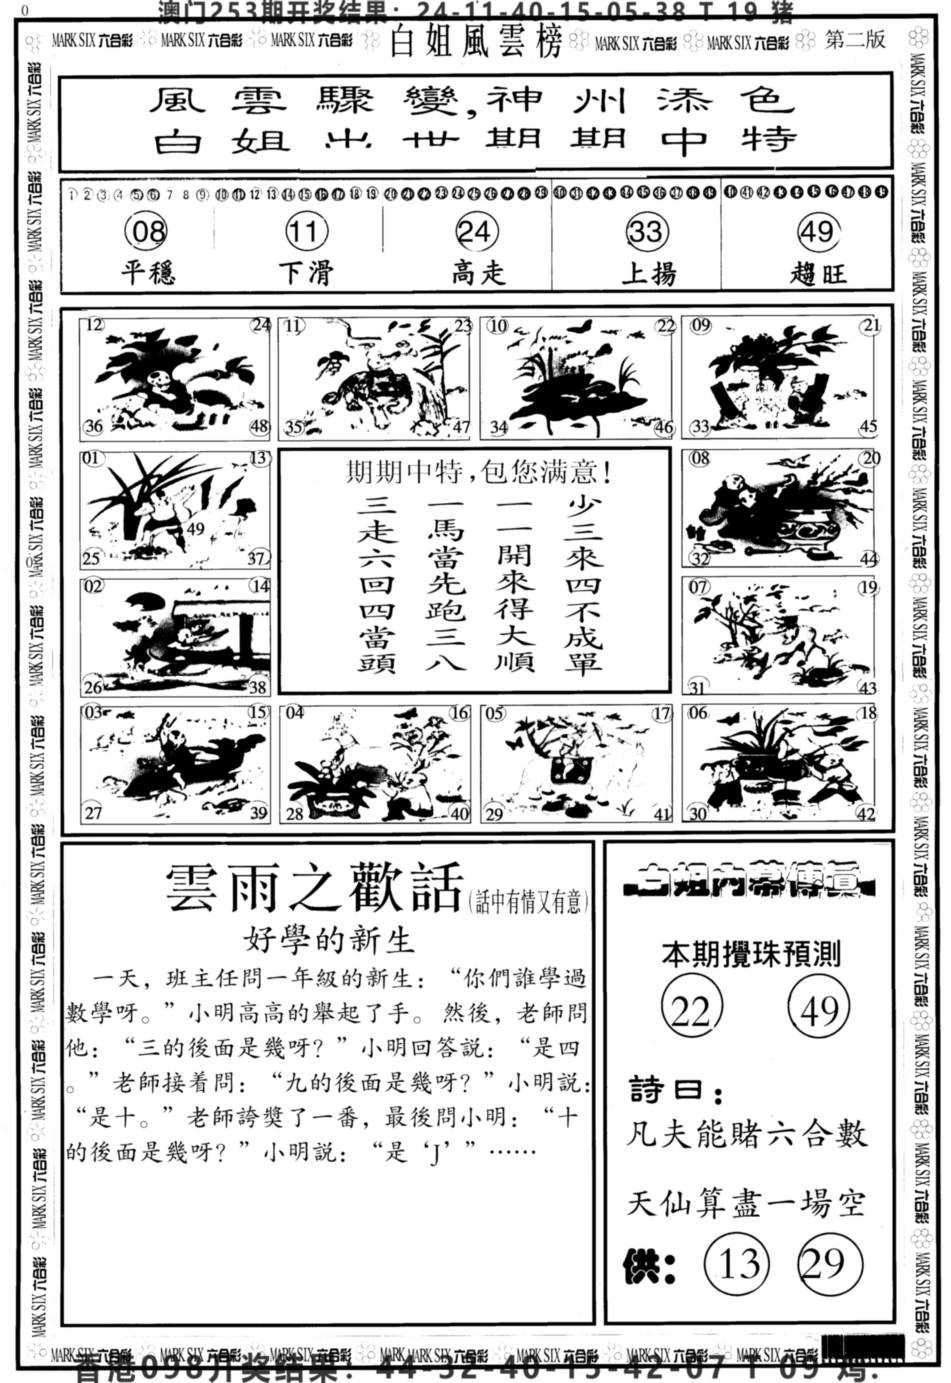 0
澳门253期开奖结果：24-11-40-15-05-38 T 19 猪
MARK SIX 六合彩 MARK SIX 六合彩 MARK SIX 六合彩 白姐風雲榜 MARK SIX 六合彩 MARK SIX 六合彩 第二版
風雲驟變，神州添色
白姐出世期期中特
08 11 24 33 49
平穩 下滑 高走 上揚 趨旺
12 24 11 23 10 22 09 21
36 48 35 47 34 46 33 45
01 13
49
25 37
02 14
26 38
期期中特，包您满意！
少三來四不成單
一一開來得大順
一馬當先跑三八
三走六回四當頭
08 20
32 44
07 19
31 43
03 15 04 16 05 17 06 18
27 39 28 40 29 41 30 42
雲雨之歡話（話中有情又有意）
好學的新生
一天，班主任問一年級的新生：“你們誰學過
數學呀。”小明高高的舉起了手。然後，老師問
他：“三的後面是幾呀？”小明回答説：“是四
。”老師接着問：“九的後面是幾呀？”小明説：
“是十。”老師誇獎了一番，最後問小明：“十
的後面是幾呀？”小明説：“是‘J’”……
白姐内幕傳真
本期攪珠預測
22 49
詩曰：
凡夫能賭六合數
天仙算盡一場空
供： 13 29
MARK SIX 六合彩 MARK SIX 六合彩 MARK SIX 六合彩 MARK SIX 六合彩 MARK SIX 六合彩 MARK SIX 六合彩 MARK SIX 六合彩
香港098开奖结果：44-32-40-15-42-07 T 09 鸡.